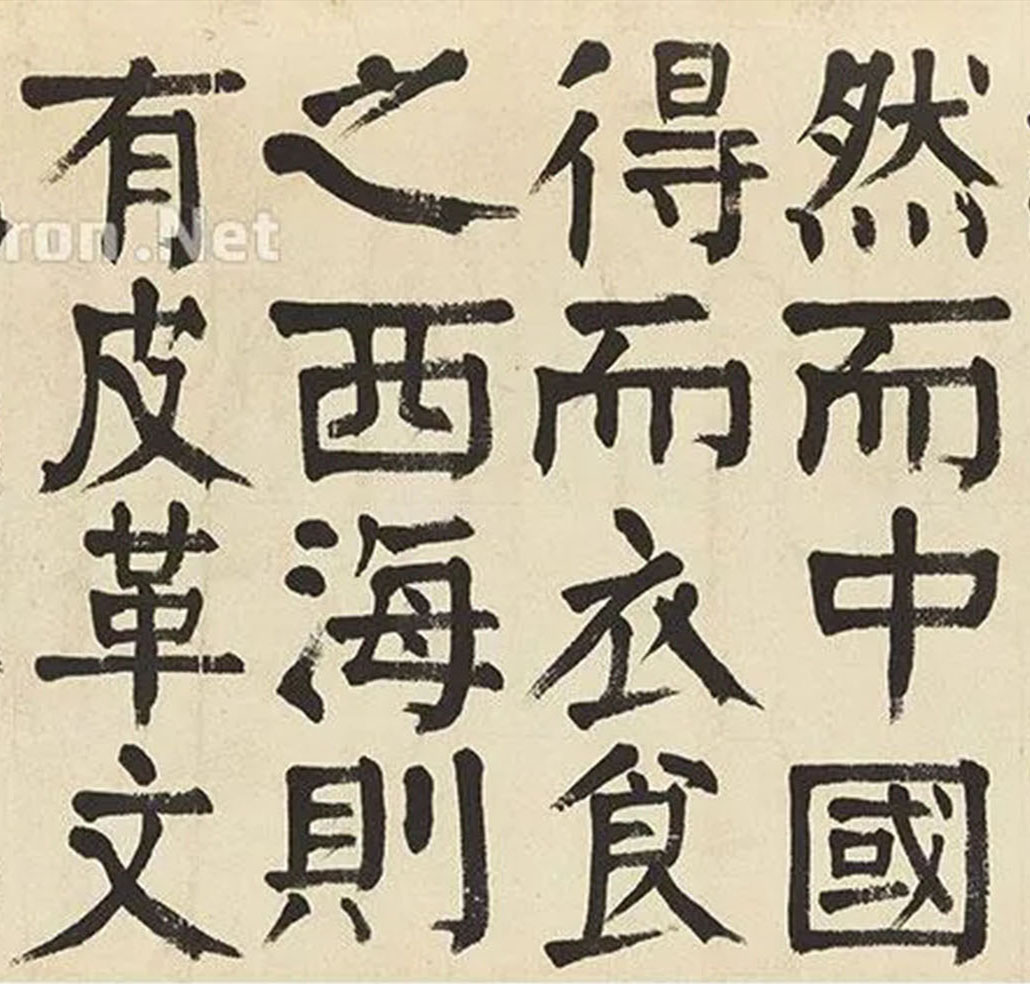 然而中國
得而衣食
之西海則
有皮革文
ron.Net